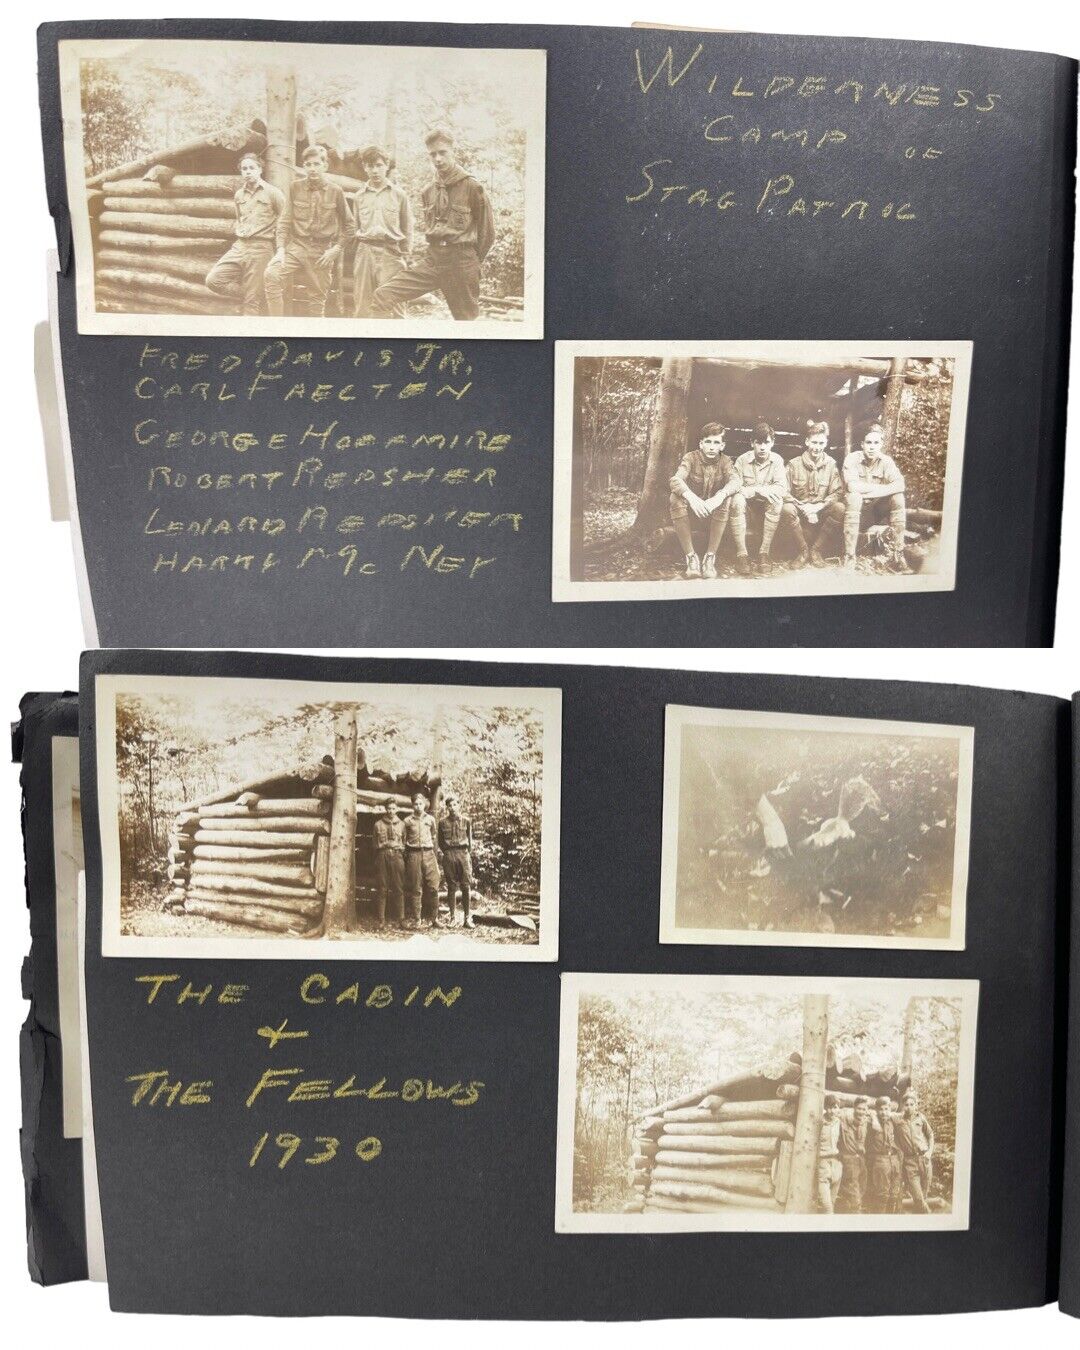 WILDERNESS
CAMP OF
STAG PATROL
FRED DAVIS JR.
CARL FAECTEN
GEORGE HOFFMIRE
ROBERT REDSHER
LENARD
HARRY Mc NEY
THE CABIN
&
THE FELLOWS
1930